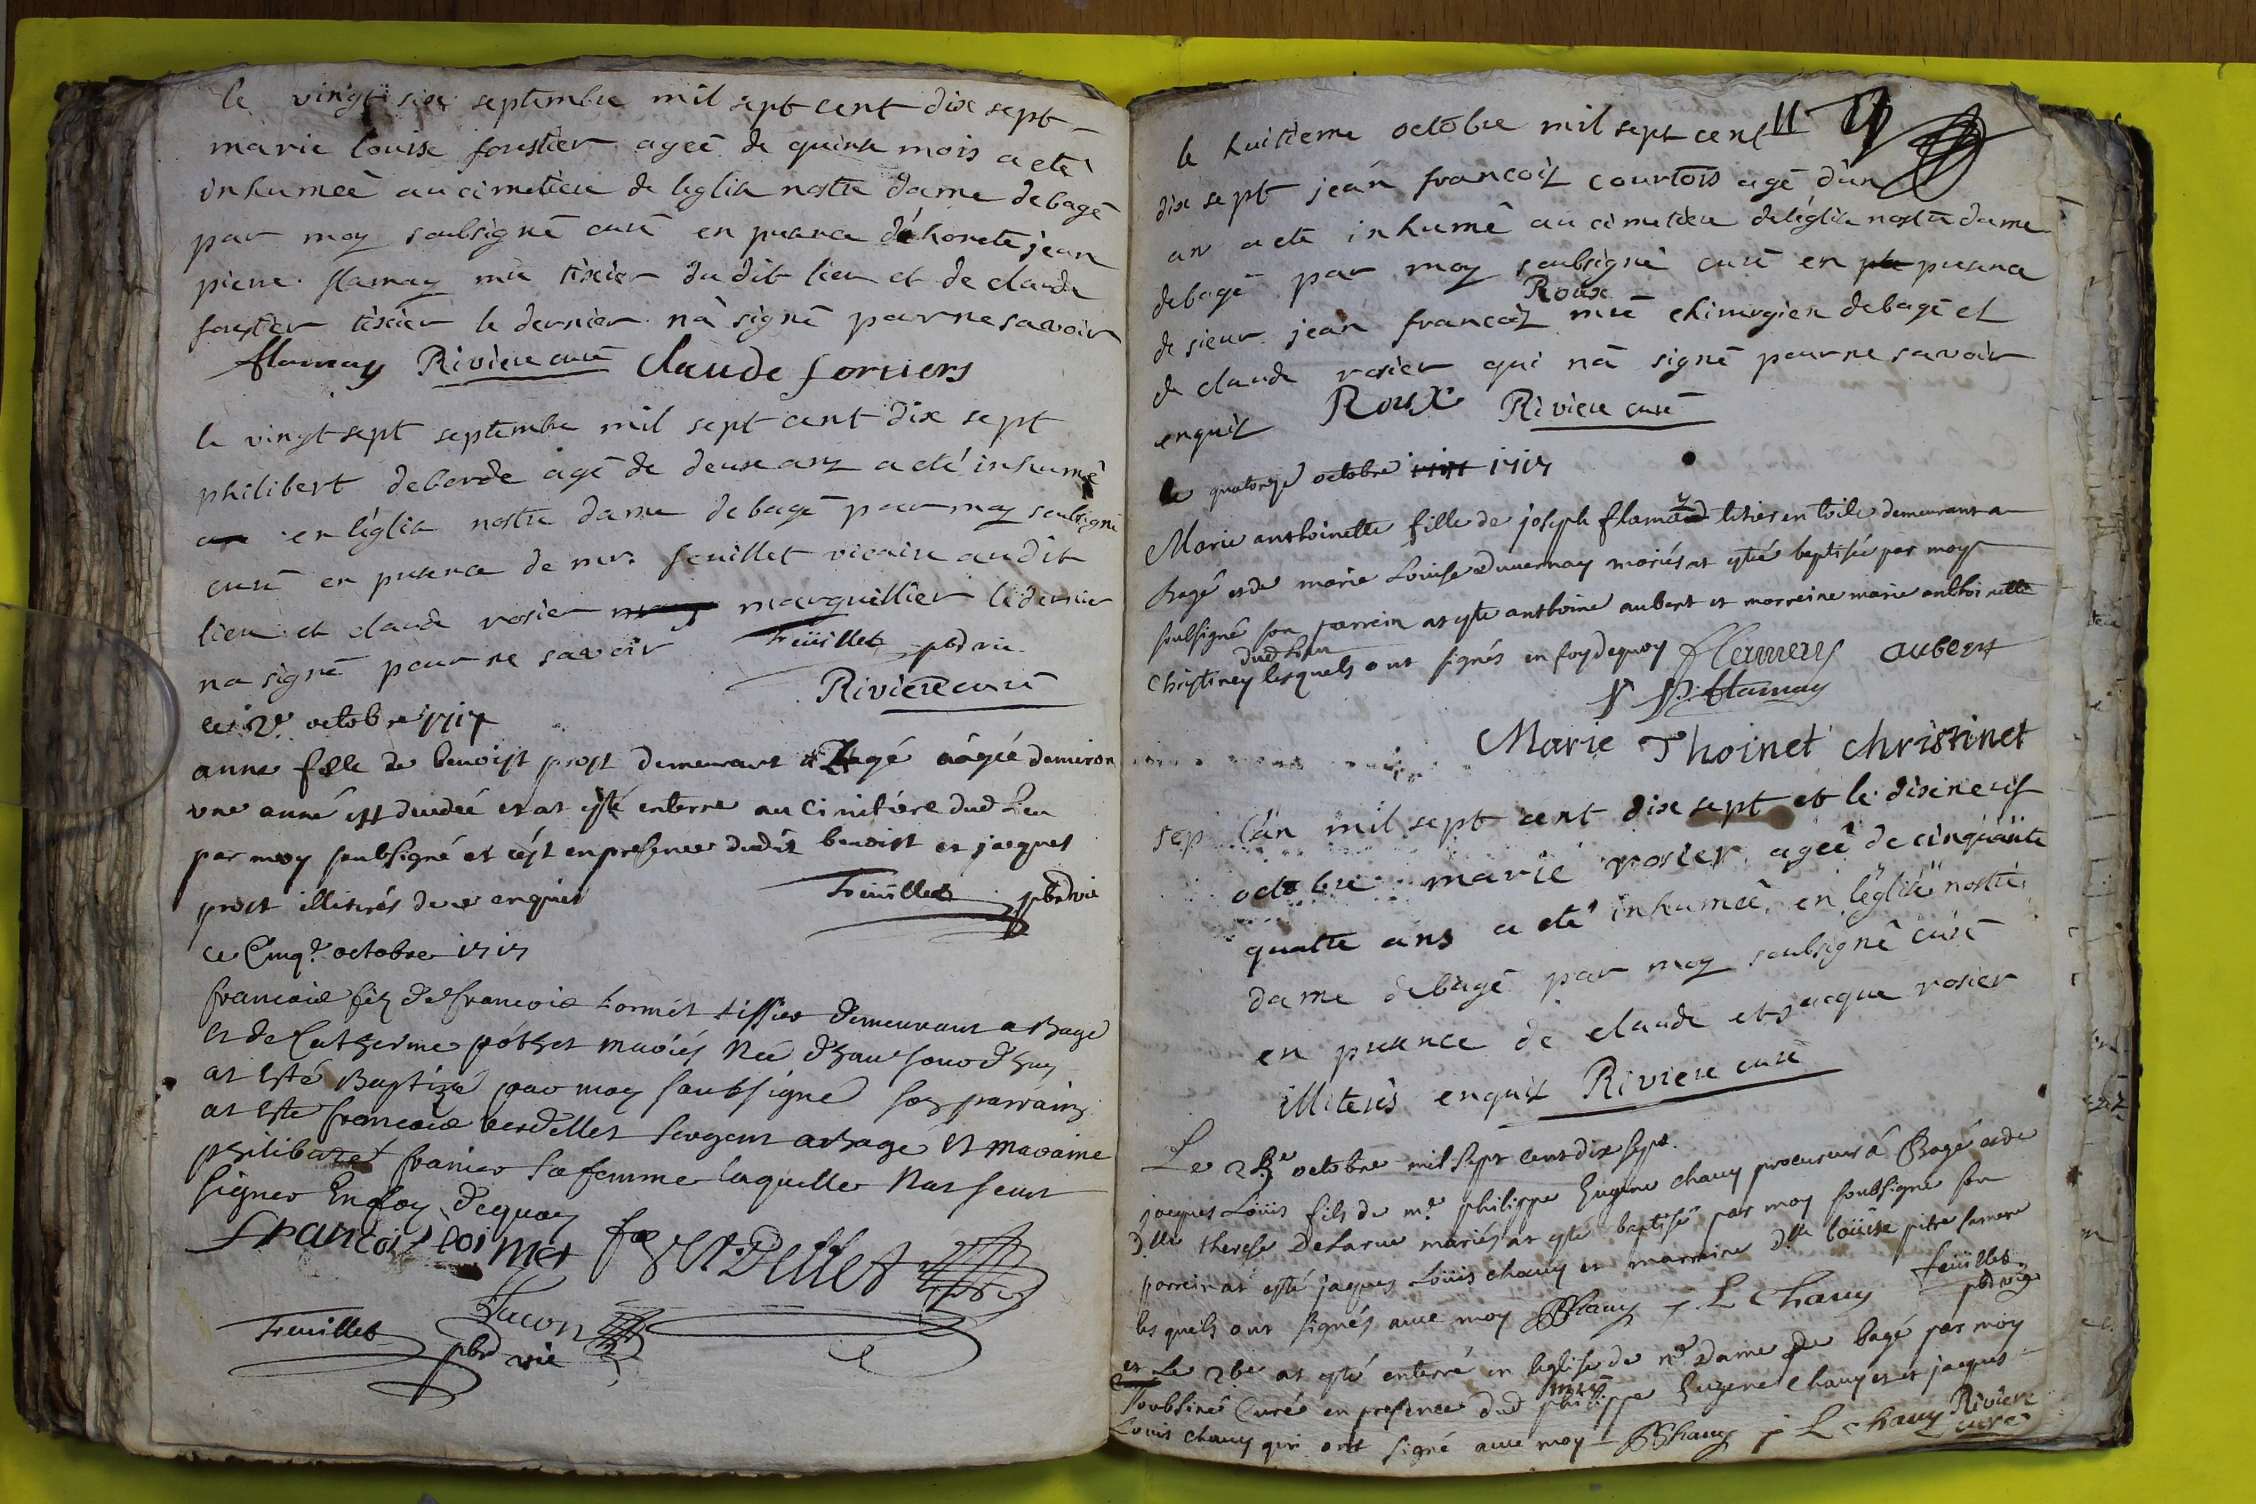 le vingt six septembre mil sept cent dix sept
marie louise forestier ageé de quinze mois a eté
inhumeé au cimetiere de leglise nostre dame de bagé
par moy soubsigné curé en presence d'honeste jean
pierre flamay me tixier du dit lieu et de claude
forestier tixier le dernier n'a signé pour ne savoir
flamay Riviere curé Claude forviers
le vingt sept septembre mil sept cent dix sept
philibert deborde agé de deux anz a eté inhumé
en leglise nostre dame de bagé par moy soubsigné
curé en presence de mr. feuillet vicaire au dit
lieu et claude rosier marguillier le dernier
na signé pour ne savoir Feüillet pbre vic
Riviere curé
ce 2e octobre 1717
anne fille de benoist prost demeurant a Bagé aâgée denviron
une anné est decedeé et at esté enterre au Cimitiere dud Lieu
par moy soubsigné et c'est en presence dudit benoist et jacques
prost illiterés de ce enquis Feüillet pbre vic
ce Cinqe octobre 1717
francois filz de francois tormet tissier demeurant a Bage
et de Catherine pothet mariés Né d'hau jourd'huy
at esté Baptizé par moy soubsigné son parrain
at este francois verdellet sergent a Bagé et maraine
philiberte sa femme laquelle N'at sceut
signer En foy dequoy
francois toimet
Feüillet pbre vic
11
le huitieme octobre mil sept cent
dix sept jean françoiz courtois agé d'un
an a eté inhumé au cimetiere deléglise nostre dame
debagé par moy soubsigné curé en presence
Roux
de sieur jean francoiz me chirurgien debagé et
de claude rosier qui n'a signé pour ne savoir
enquiz Roux Riviere curé
le quatorze octobre 1717
Marie anthoinette fille de joseph flamay titier en toile demeurant a
Bagé et de marie Louise duvernay mariés at esté baptisée par moy
soubsigné son parrein at este anthoine aubert et marreine marie anthoinette
dud Lieu
Christiney lesquels ont signés en foy dequoy flamay aubert
flamay
Marie Thoinet christinet
sep l'an mil sept cent dix sept et le dixneuf
octobre marie rosier ageé de cinquante
quatre ans a eté inhumeé en l'église nostre
dame de bagé par moy soubsigné curé
en presence de claude et jacque rosier
illiterés enquiz Riviere curé
Le octobre mil sept cent dix sept.
jacques Loüis fils de me philippe Eugene chauy procureur á Bagé et de
Dlle therese Delarue mariés at esté baptisé par moy soubsigné son
parrein at esté jacques Loüis chauy et marraine Dlle loüise pitre
les quels ont signés avec moy PEChauy j L Chauy feüillet pbre vic
et Le at esté enterré en leglise de ne Dame de bagé par moy
soubsiné Curé en presence dud me philippe Eugene chauy et et jacques
Louis chauy qui ont signé avec moy PEChauy j L chauy Riviere curé